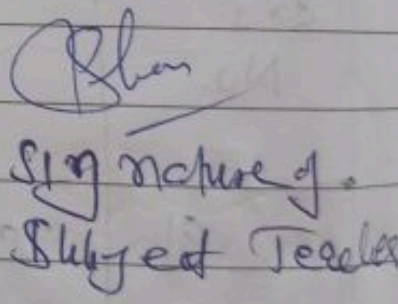 Signature of.
Subject Teacher